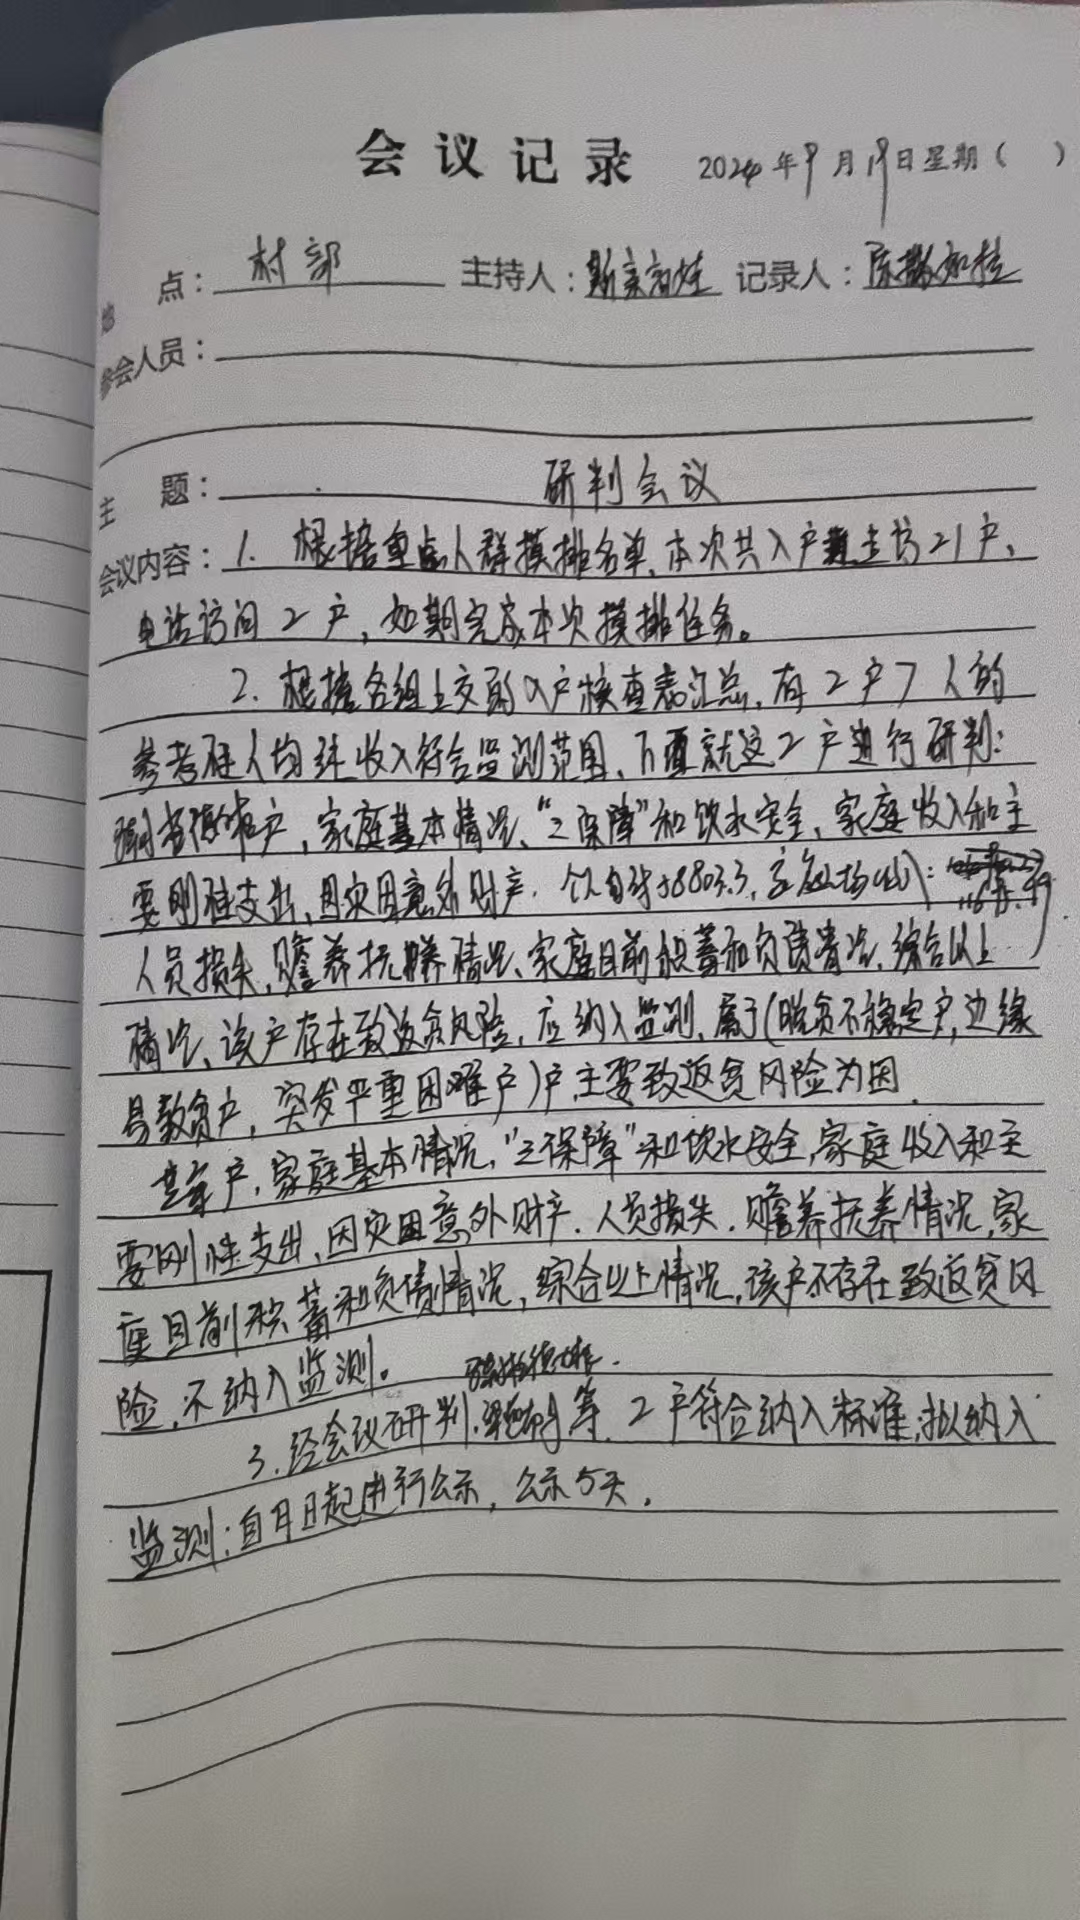 会议记录 2024年9月19日星期( )
地点: 村部 主持人: 记录人:
参会人员:
主题: 研判会议
会议内容: 1. 根据重点人群摸排名单,本次共入户走访21户,
电话访问2户,如期完成本次摸排任务。
2. 根据各组上交的入户核查表汇总,有2户7人的
参考性人均纯收入符合监测范围,下面就这2户进行研判:
户,家庭基本情况、“三保障”和饮水安全,家庭收入和主
要刚性支出,因灾因意外财产. 8803.3,
人员损失,赡养抚养情况、家庭目前积蓄和负债情况,综合以上
情况、该户存在致返贫风险,应纳入监测,属于(脱贫不稳定户,边缘
易致贫户,突发严重困难户)户,主要致返贫风险为因
户,家庭基本情况,“三保障”和饮水安全,家庭收入和主
要刚性支出,因灾因意外财产.人员损失.赡养抚养情况,家
庭目前积蓄和负债情况,综合以上情况,该户不存在致返贫风
险,不纳入监测。
3.经会议研判, 等.2户符合纳入标准,拟纳入
监测;自月日起进行公示,公示5天.